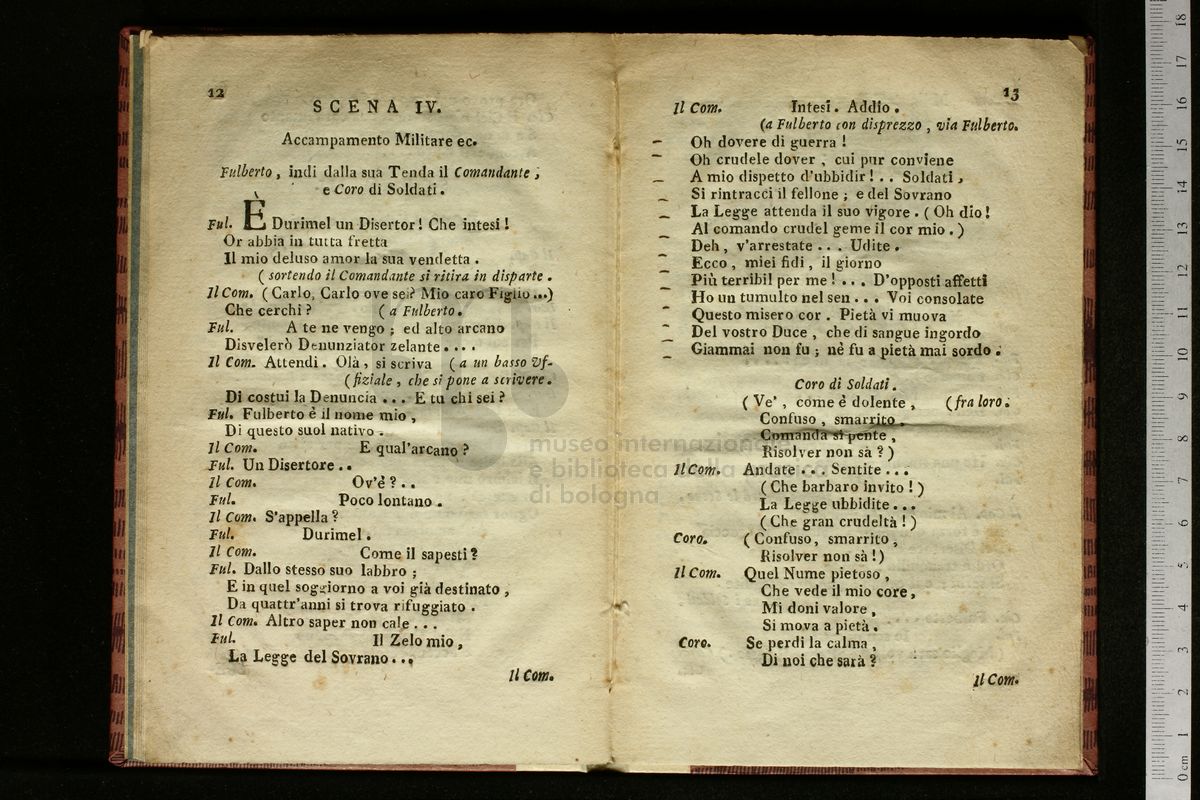 12
SCENA IV.
Accampamento Militare ec.
Fulberto, indi dalla sua Tenda il Comandante;
e Coro di Soldati.
Ful. È Durimel un Disertor! Che intesi!
Or abbia in tutta fretta
Il mio deluso amor la sua vendetta.
( sortendo il Comandante si ritira in disparte.
Il Com. ( Carlo, Carlo ove sei? Mio caro Figlio...)
Che cerchi? ( a Fulberto.
Ful. A te ne vengo; ed alto arcano
Disvelerò Denunziator zelante....
Il Com. Attendi. Olà, si scriva ( a un basso Vf-
( fiziale, che si pone a scrivere.
Di costui la Denuncia ... E tu chi sei?
Ful. Fulberto è il nome mio,
Di questo suol nativo.
Il Com. E qual'arcano?
Ful. Un Disertore..
Il Com. Ov'è?..
Ful. Poco lontano.
Il Com. S'appella?
Ful. Durimel.
Il Com. Come il sapesti?
Ful. Dallo stesso suo labbro;
E in quel soggiorno a voi già destinato,
Da quattr'anni si trova rifuggiato.
Il Com. Altro saper non cale...
Ful. Il Zelo mio,
La Legge del Sovrano...
Il Com.
13
Il Com. Intesi. Addio.
(a Fulberto con disprezzo, via Fulberto.
- Oh dovere di guerra!
- Oh crudele dover, cui pur conviene
- A mio dispetto d'ubbidir!.. Soldati,
- Si rintracci il fellone; e del Sovrano
- La Legge attenda il suo vigore. ( Oh dio!
- Al comando crudel geme il cor mio.)
- Deh, v'arrestate... Udite.
- Ecco, miei fidi, il giorno
- Più terribil per me!... D'opposti affetti
- Ho un tumulto nel sen... Voi consolate
- Questo misero cor. Pietà vi muova
- Del vostro Duce, che di sangue ingordo
- Giammai non fu; nè fu a pietà mai sordo.
Coro di Soldati.
( Ve', come è dolente, (fra loro.
Confuso, smarrito.
Comanda si pente,
Risolver non sà?)
Il Com. Andate... Sentite...
( Che barbaro invito!)
La Legge ubbidite...
( Che gran crudeltà!)
Coro. ( Confuso, smarrito,
Risolver non sà!)
Il Com. Quel Nume pietoso,
Che vede il mio core,
Mi doni valore,
Si mova a pietà.
Coro. Se perdi la calma,
Di noi che sarà?
Il Com.
museo internazionale
e biblioteca della
di bologna
0 cm 1 2 3 4 5 6 7 8 9 10 11 12 13 14 15 16 17 18